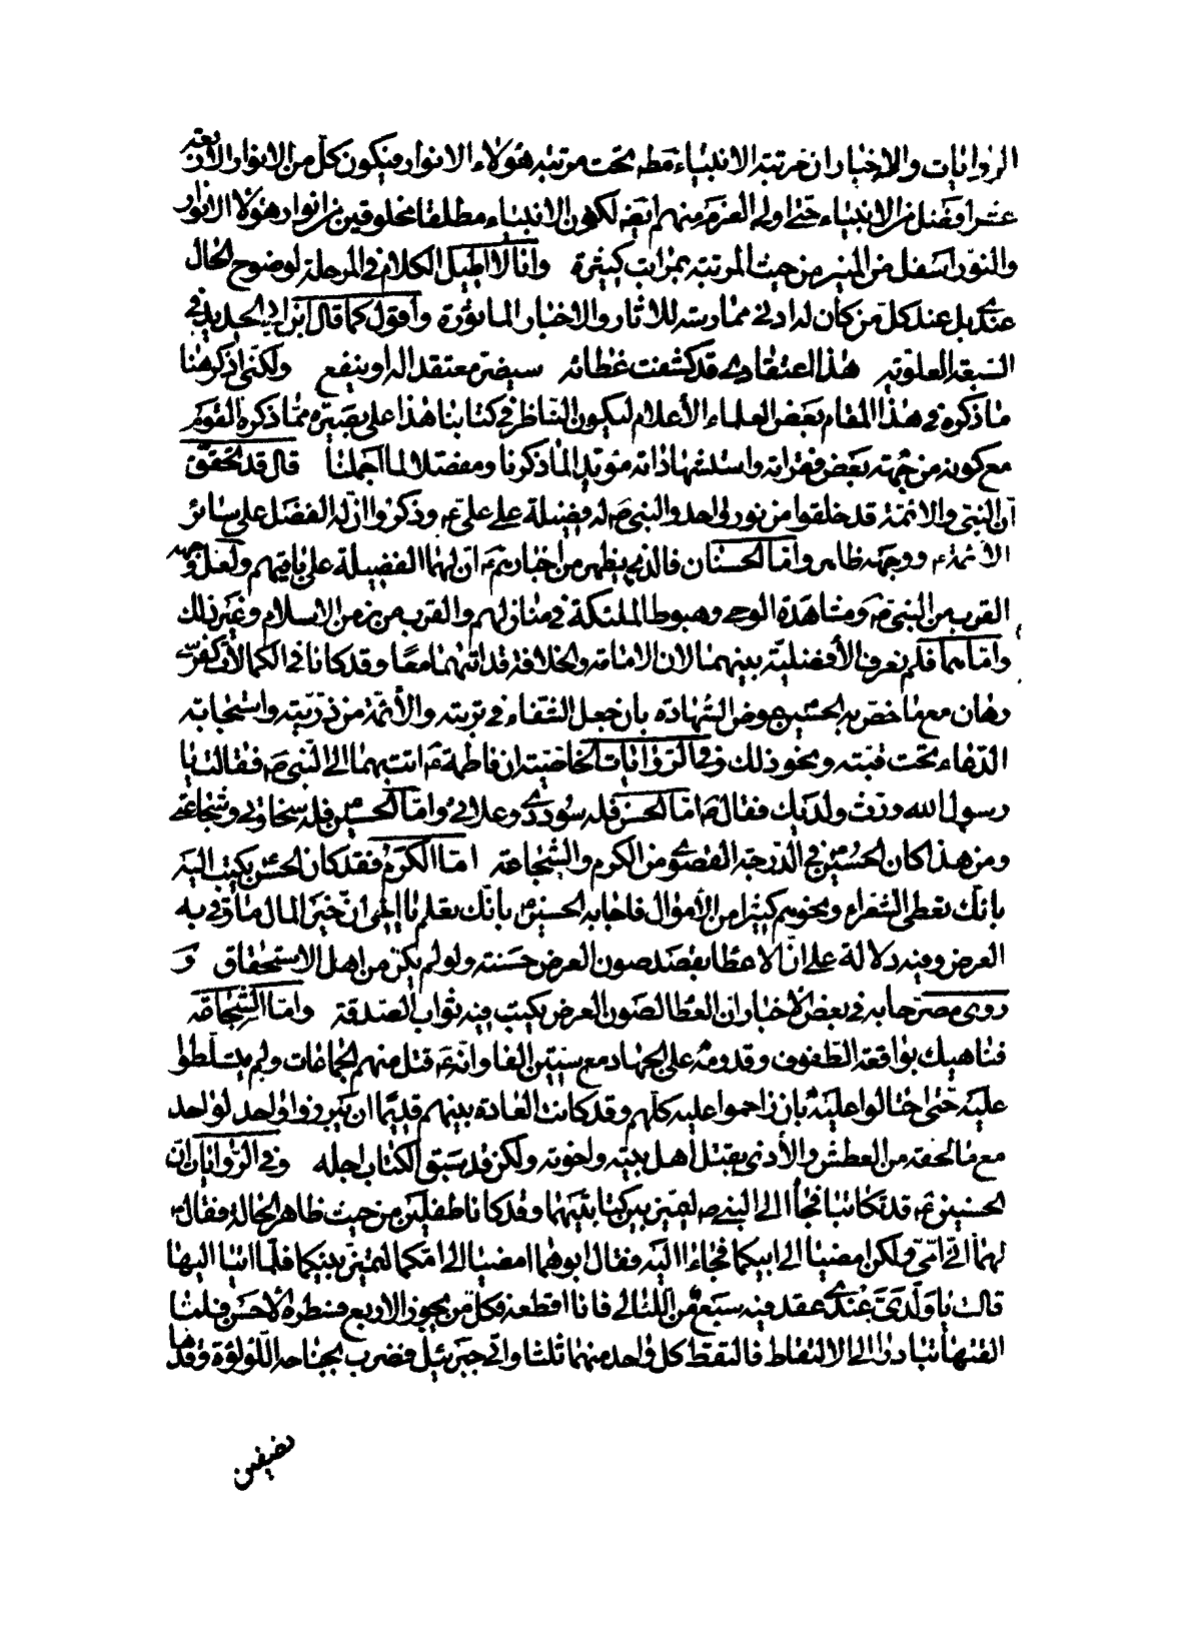 الروايات والاخبار ان مرتبة الانبياء مط تحت مرتبة هؤلاء الانوار فيكون كل من الانوار الاربعة
عشر افضل من الانبياء حتى اولى العزم منهم ايضا لكون الانبياء مطلقا مخلوقين من انوار هؤلاء الانوار
والنور اسفل من المنير من حيث المرتبة بمراتب كثيرة وانا لا اطيل الكلام في المرحلة لوضوح الحال
عندي بل عند كل من كان له ادنى ممارسة للاثار والاخبار الماثورة واقول كما قال ابن ابي الحديد في
السبعة العلوية هذا اعتقادي قد كشفت غطائه سيضر معتقدا له او ينفع ولكني اذكر هنا
ما ذكره في هذا المقام بعض العلماء الأعلام ليكون الناظر في كتابنا هذا على بصيرة مما ذكره القوم
مع كونه من جهة بعض فقراته واستشهاداته مؤيدا لما ذكرنا ومفصلا لما اجملنا قال قد تحقق
ان النبي والائمة قد خلقوا من نور واحد والنبي ص له فضيلة على علي ع وذكروا ان له الفضل على سائر
الائمة ع ووجهه ظاهر واما الحسنان فالذي يظهر من اخبارهم ع ان لهما الفضيلة على باقيهم ولعل وجهه
القرب من النبي ص ومشاهدة الوحي وهبوط الملئكة في منازلهم والقرب من زمن الاسلام وغير ذلك
واما هما فلم نعرف الأفضلية بينهما لان الامامة والخلافة قد اتتهما معا وقد كانا في الكمالات كفرسي
رهان مع ما خص به الحسين ع عوض الشهادة بان جعل الشفاء في تربته والأئمة من ذريته واستجابة
الدعاء تحت قبته ونحو ذلك وفي الروايات الخاصة ان فاطمة ع اتت بهما الى النبي ص فقالت يا
رسول الله ورث ولديك فقال ص اما الحسن فله سؤددي وعلائي واما الحسين فله سخاوتي وشجاعتي
ومن هذا كان الحسين في الدرجة القصوى من الكرم والشجاعة اما الكرم فقد كان الحسن يكتب اليه
بانك تعطى الشعراء ونحوهم كثيرا من الأموال فاجابه الحسين بانك تعلم يا اخي ان خير المال ما وقي به
العرض وفيه دلالة على ان الاعطا بقصد صون العرض حسنة ولو لم يكن من اهل الاستحقاق و
روى مصرحا به في بعض الاخبار ان العطا لصون العرض يكتب فيه ثواب الصدقة واما الشجاعة
فناهيك بواقعة الطفوف وقدومه على الجهاد مع ستين الفا وانه ع قتل منهم الجماعات ولم يتسلطوا
عليه حتى احتالوا عليه بان زاحموا عليه كلهم وقد كانت العادة بينهم قديما ان يبرزوا واحد لواحد
مع ما لحقه من العطش والأذى بقتل اهل بيته واخوته ولكن قد سبق الكتاب اجله وفي الروايات ان
الحسنين ع قد تكاتبا فجاا الى النبي ص ليميز بين كتابتيهما وقد كانا طفلين من حيث ظاهر الحالة فقال ص
لهما اني امي ولكن امضيا الى ابيكما فجاءا اليه فقال ابوهما امضيا الى امكما لتميز بينكما فلما اتيا اليها
قالت يا ولدي عندي عقد فيه سبع من اللئالي فانا اقطعه فكل من يحوز الاربع فسطره الاحسن فلما
القتها تبادرا الى الالتقاط فالتقط كل واحد منهما ثلثا واتى جبرئيل فضرب بجناحه اللؤلؤة وقدها
نصفين